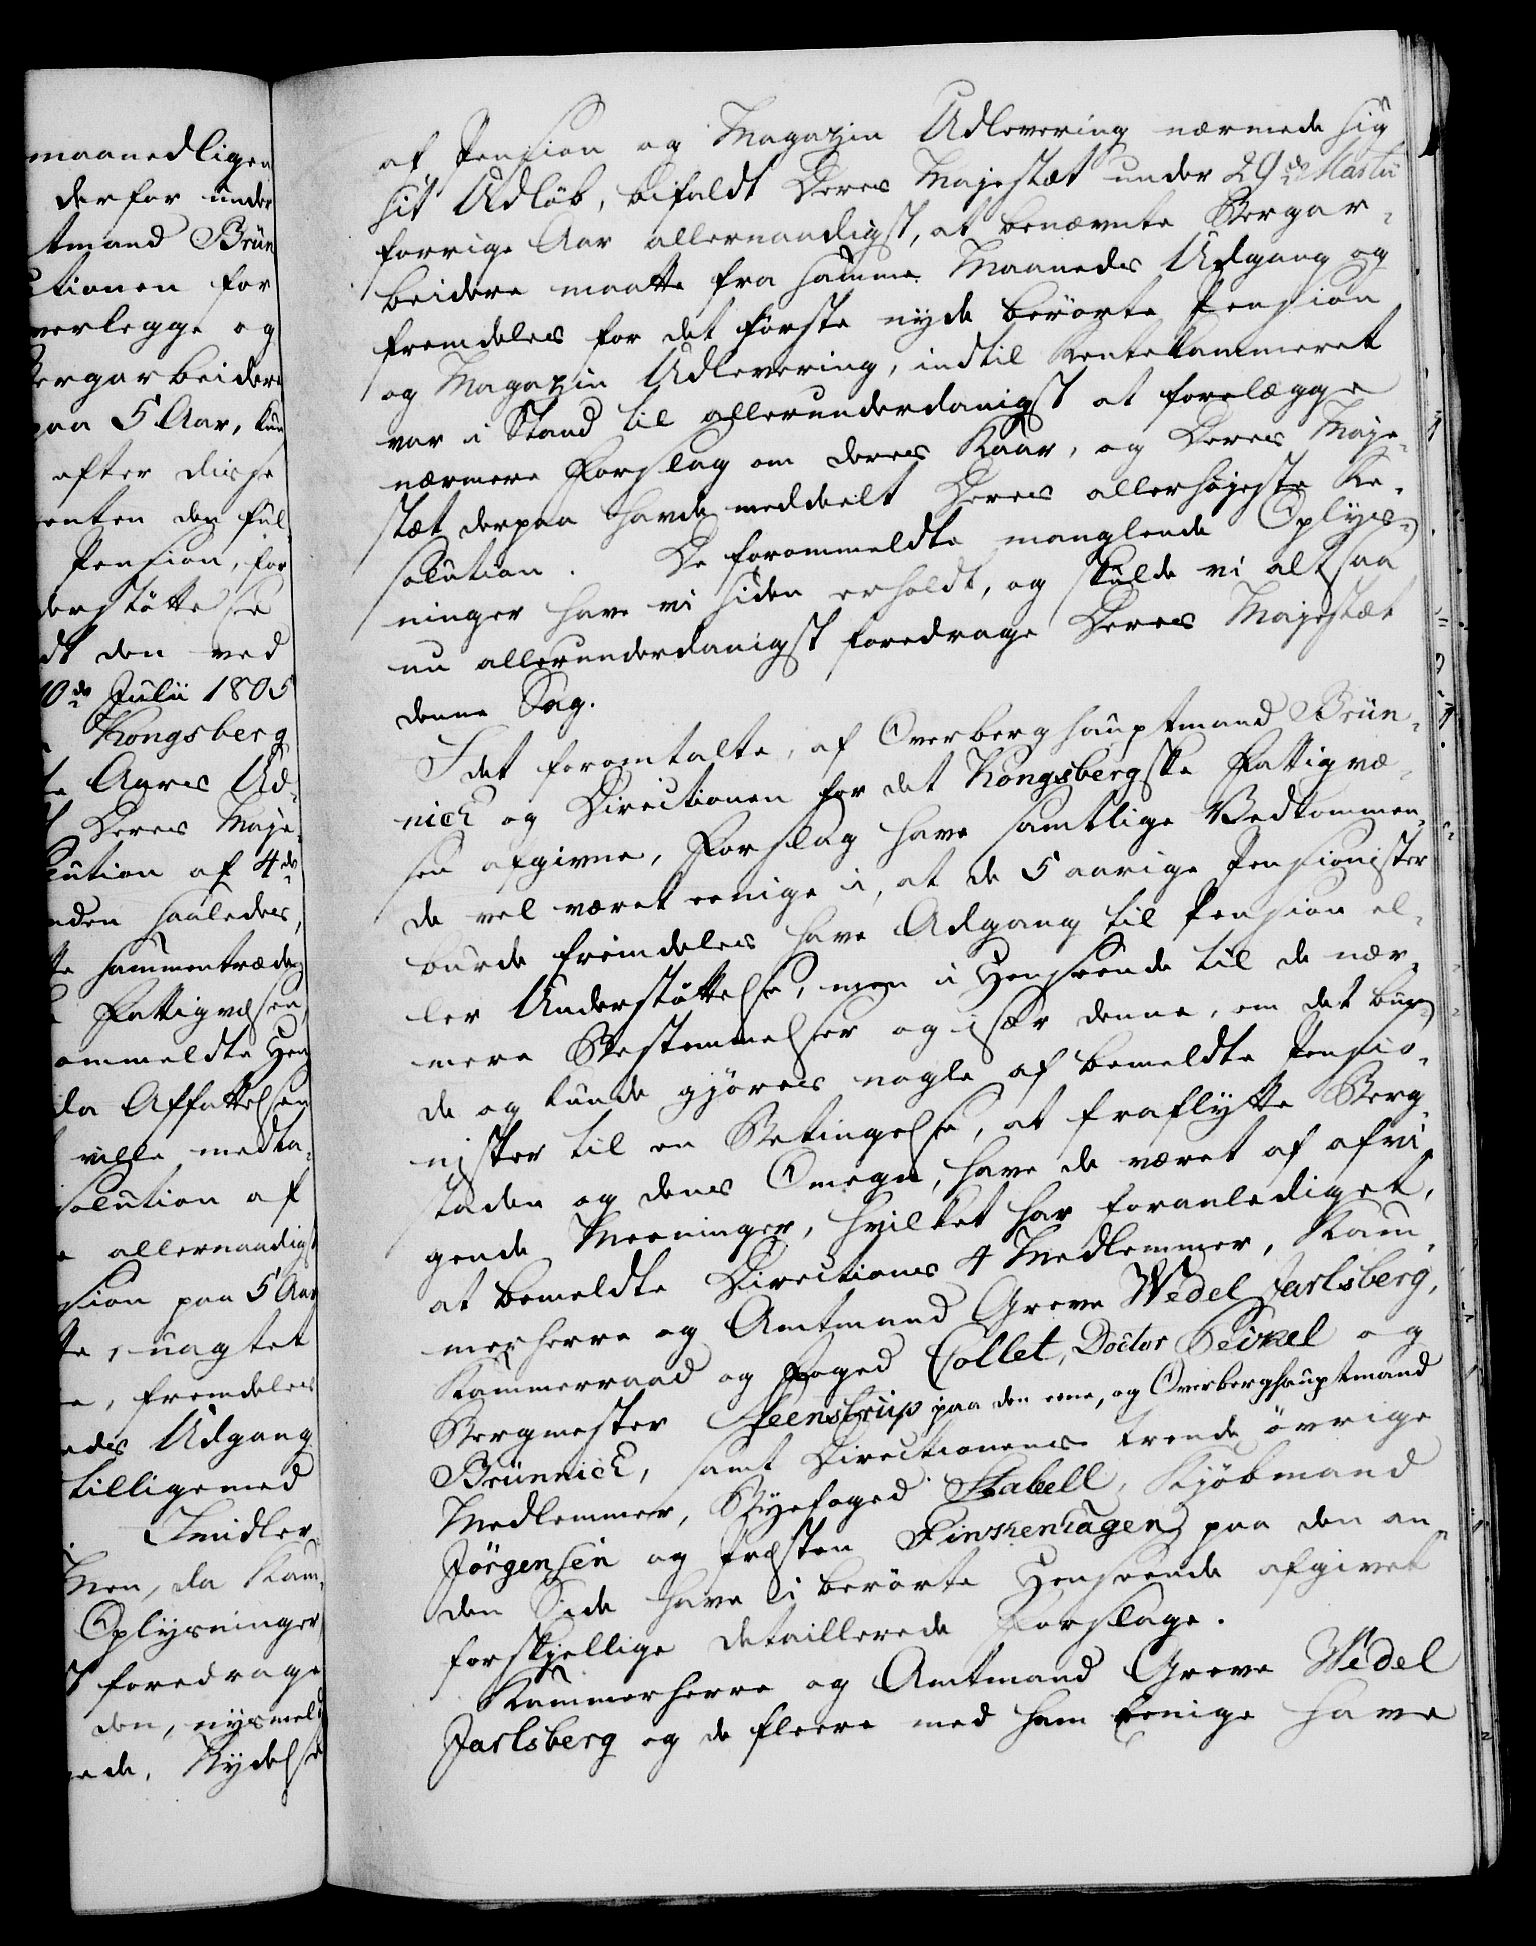 maanedligen
derfor under
tmand Brün
ctionen for
verlegge og
Bergarbeidere
paa 5 Aar, kun
efter disse
enten den ful-
Pension, for
derstøttelse
dt den ved
10de Julii 1805
Kongsberg
te Aars Ud-
Deres Maje-
lution af 4de
nden saaledes,
te sammentræde
Fattigvæsen,
ommeldte Hen
da Affattelsen
ville medta-
solution af
allernaadigst
sion paa 5 Aar
te, uagtet
e, fremdeles
neds Udgang
tilligemed
Imidler-
Men, da Kam-
Oplysninger
foredrage
den, nysmeld
ede, Nydelse
af Pension og Magazin Udlevering nærmede sig
sit Udløb, bifaldt Deres Majestæt under 29de Martii
forrige Aar allernaadigst, at benævnte Bergar-
beidere maatte fra samme Maaneds Udgang og
fremdeles for det første nyde berørte Pension
og Magazin Udlevering, indtil Rentekammeret
var i Stand til allerunderdanigst at forelægge
nærmere Forslag om deres Kaar, og Deres Maje-
stæt derpaa havde meddeelt Deres allerhøjeste Re-
solution. De forommeldte manglende Oplys-
ninger have vi siden erholdt, og skulde vi altsaa
nu allerunderdanigst foredrage Deres Majestæt
denne Sag.
I det foromtalte, af Overberghauptmand Brün-
nich og Directionen for det Kongsbergske Fattigvæ-
sen afgivne, Forslag have samtlige Vedkommen-
de vel været eenige i, at de 5 aarige Pensionister
burde fremdeles have Adgang til Pension el-
ler Understøttelse, men i Henseende til de nær-
mere Bestemmelser og især denne, om det bur-
de og kunde gjøres nogle af bemeldte Pensio-
nister til en Betingelse, at fraflytte Berg-
staden og dens Omegn, have de været af afvi-
gende Meeninger, hvilket har foranlediget,
at bemeldte Directions 4 Medlemmer, Kam-
merherre og Amtmand Greve Wedel Jarlsberg,
Kammerraad og Foged Collet, Doctor Peckel og
Bergmester Steenstrup paa den eene, og Overberghauptmand
Brünnich, samt Directionens trende øvrige
Medlemmer, Byefoged Stabell, Kjøbmand
Jørgensen og Præsten Finkenhagen paa den an-
den Side have i berørte Henseende afgivet
forskjellige detaillerede Forslage.
Kammerherre og Amtmand Greve Wedel
Jarlsberg og de fleere med ham Eenige have